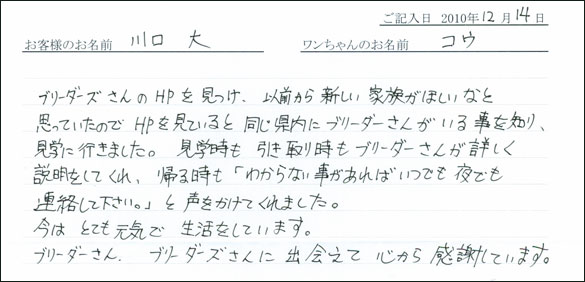 ご記入日 2010年12月14日
お客様のお名前 川口 大 ワンちゃんのお名前 コウ
ブリーダーズさんのHPを見つけ、以前から新しい家族がほしいなと
思っていたのでHPを見ていると同じ県内にブリーダーさんがいる事を知り、
見学に行きました。見学時も引き取り時もブリーダーさんが詳しく
説明をしてくれ、帰る時も「わからない事があればいつでも夜でも
連絡して下さい。」と声をかけてくれました。
今はとても元気で生活をしています。
ブリーダーさん、ブリーダーズさんに出会えて心から感謝しています。